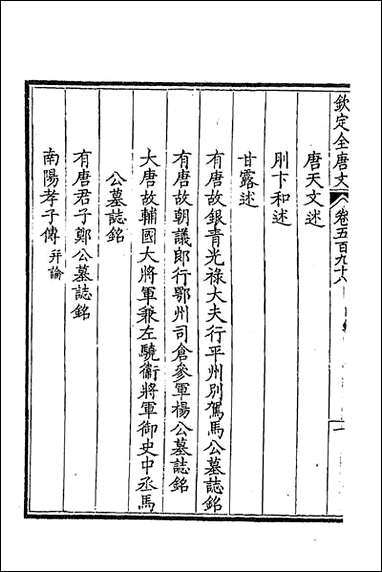 欽定全唐文 卷五百九十八 目錄 一
唐天文述
刖卞和述
甘露述
有唐故銀青光祿大夫行平州別駕馬公墓誌銘
有唐故朝議郎行鄂州司倉參軍楊公墓誌銘
大唐故輔國大將軍兼左驍衞將軍御史中丞馬
公墓誌銘
有唐君子鄭公墓誌銘
南陽孝子傳 并論